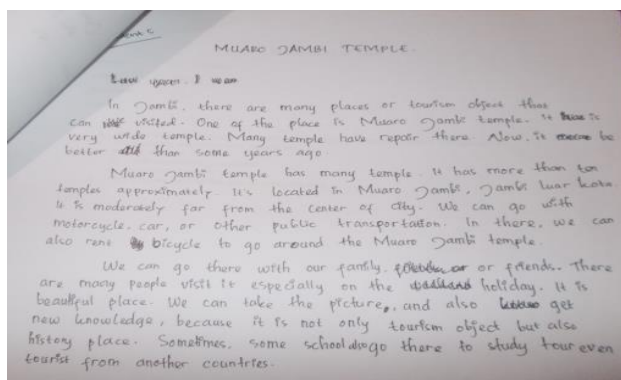 MUARO JAMBI TEMPLE.
In Jambi, there are many places or tourism object that
can visited. One of the place is Muaro Jambi temple. It is
very wide temple. Many temple have repair there. Now, it be
better than some years ago.
Muaro Jambi temple has many temple. It has more than ten
temples approximately. It's located in Muaro Jambi, Jambi luar kota.
It is moderately far from the center of city. We can go with
motorcycle, car, or other public transportation. In there, we can
also rent bicycle to go around the Muaro Jambi temple.
We can go there with our family, or friends. There
are many people visit it especially on the holiday. It is
beautiful place. We can take the picture, and also get
new knowledge, because it is not only tourism object but also
history place. Sometimes, some school also go there to study tour even
tourist from another countries.